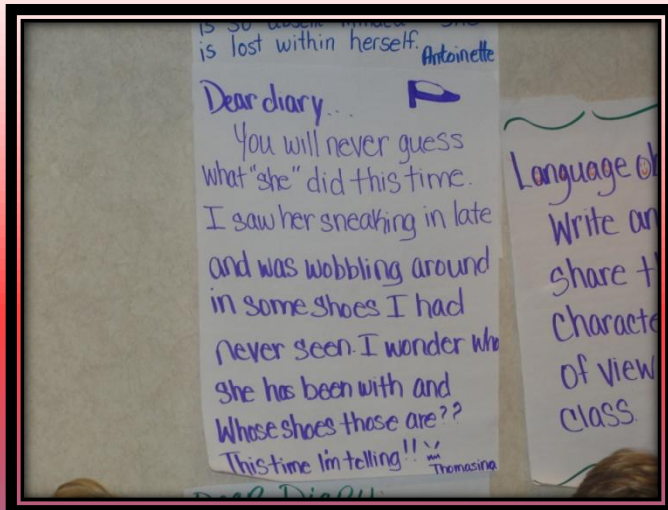 is so absent minded she
is lost within herself.
Antoinette
Dear diary...
You will never guess
what "she" did this time.
I saw her sneaking in late
and was wobbling around
in some shoes I had
never seen. I wonder who
she has been with and
Whose shoes those are??
This time I'm telling!!
Thomasina
Dear Diary
Language
Write
share
of view
class.